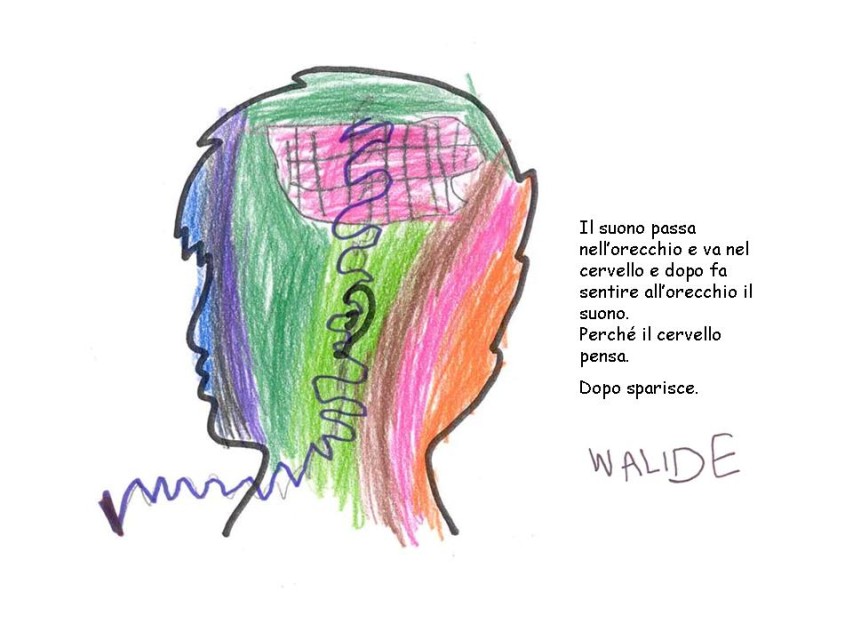 Il suono passa
nell'orecchio e va nel
cervello e dopo fa
sentire all'orecchio il
suono.
Perché il cervello
pensa.
Dopo sparisce.
WALIDE